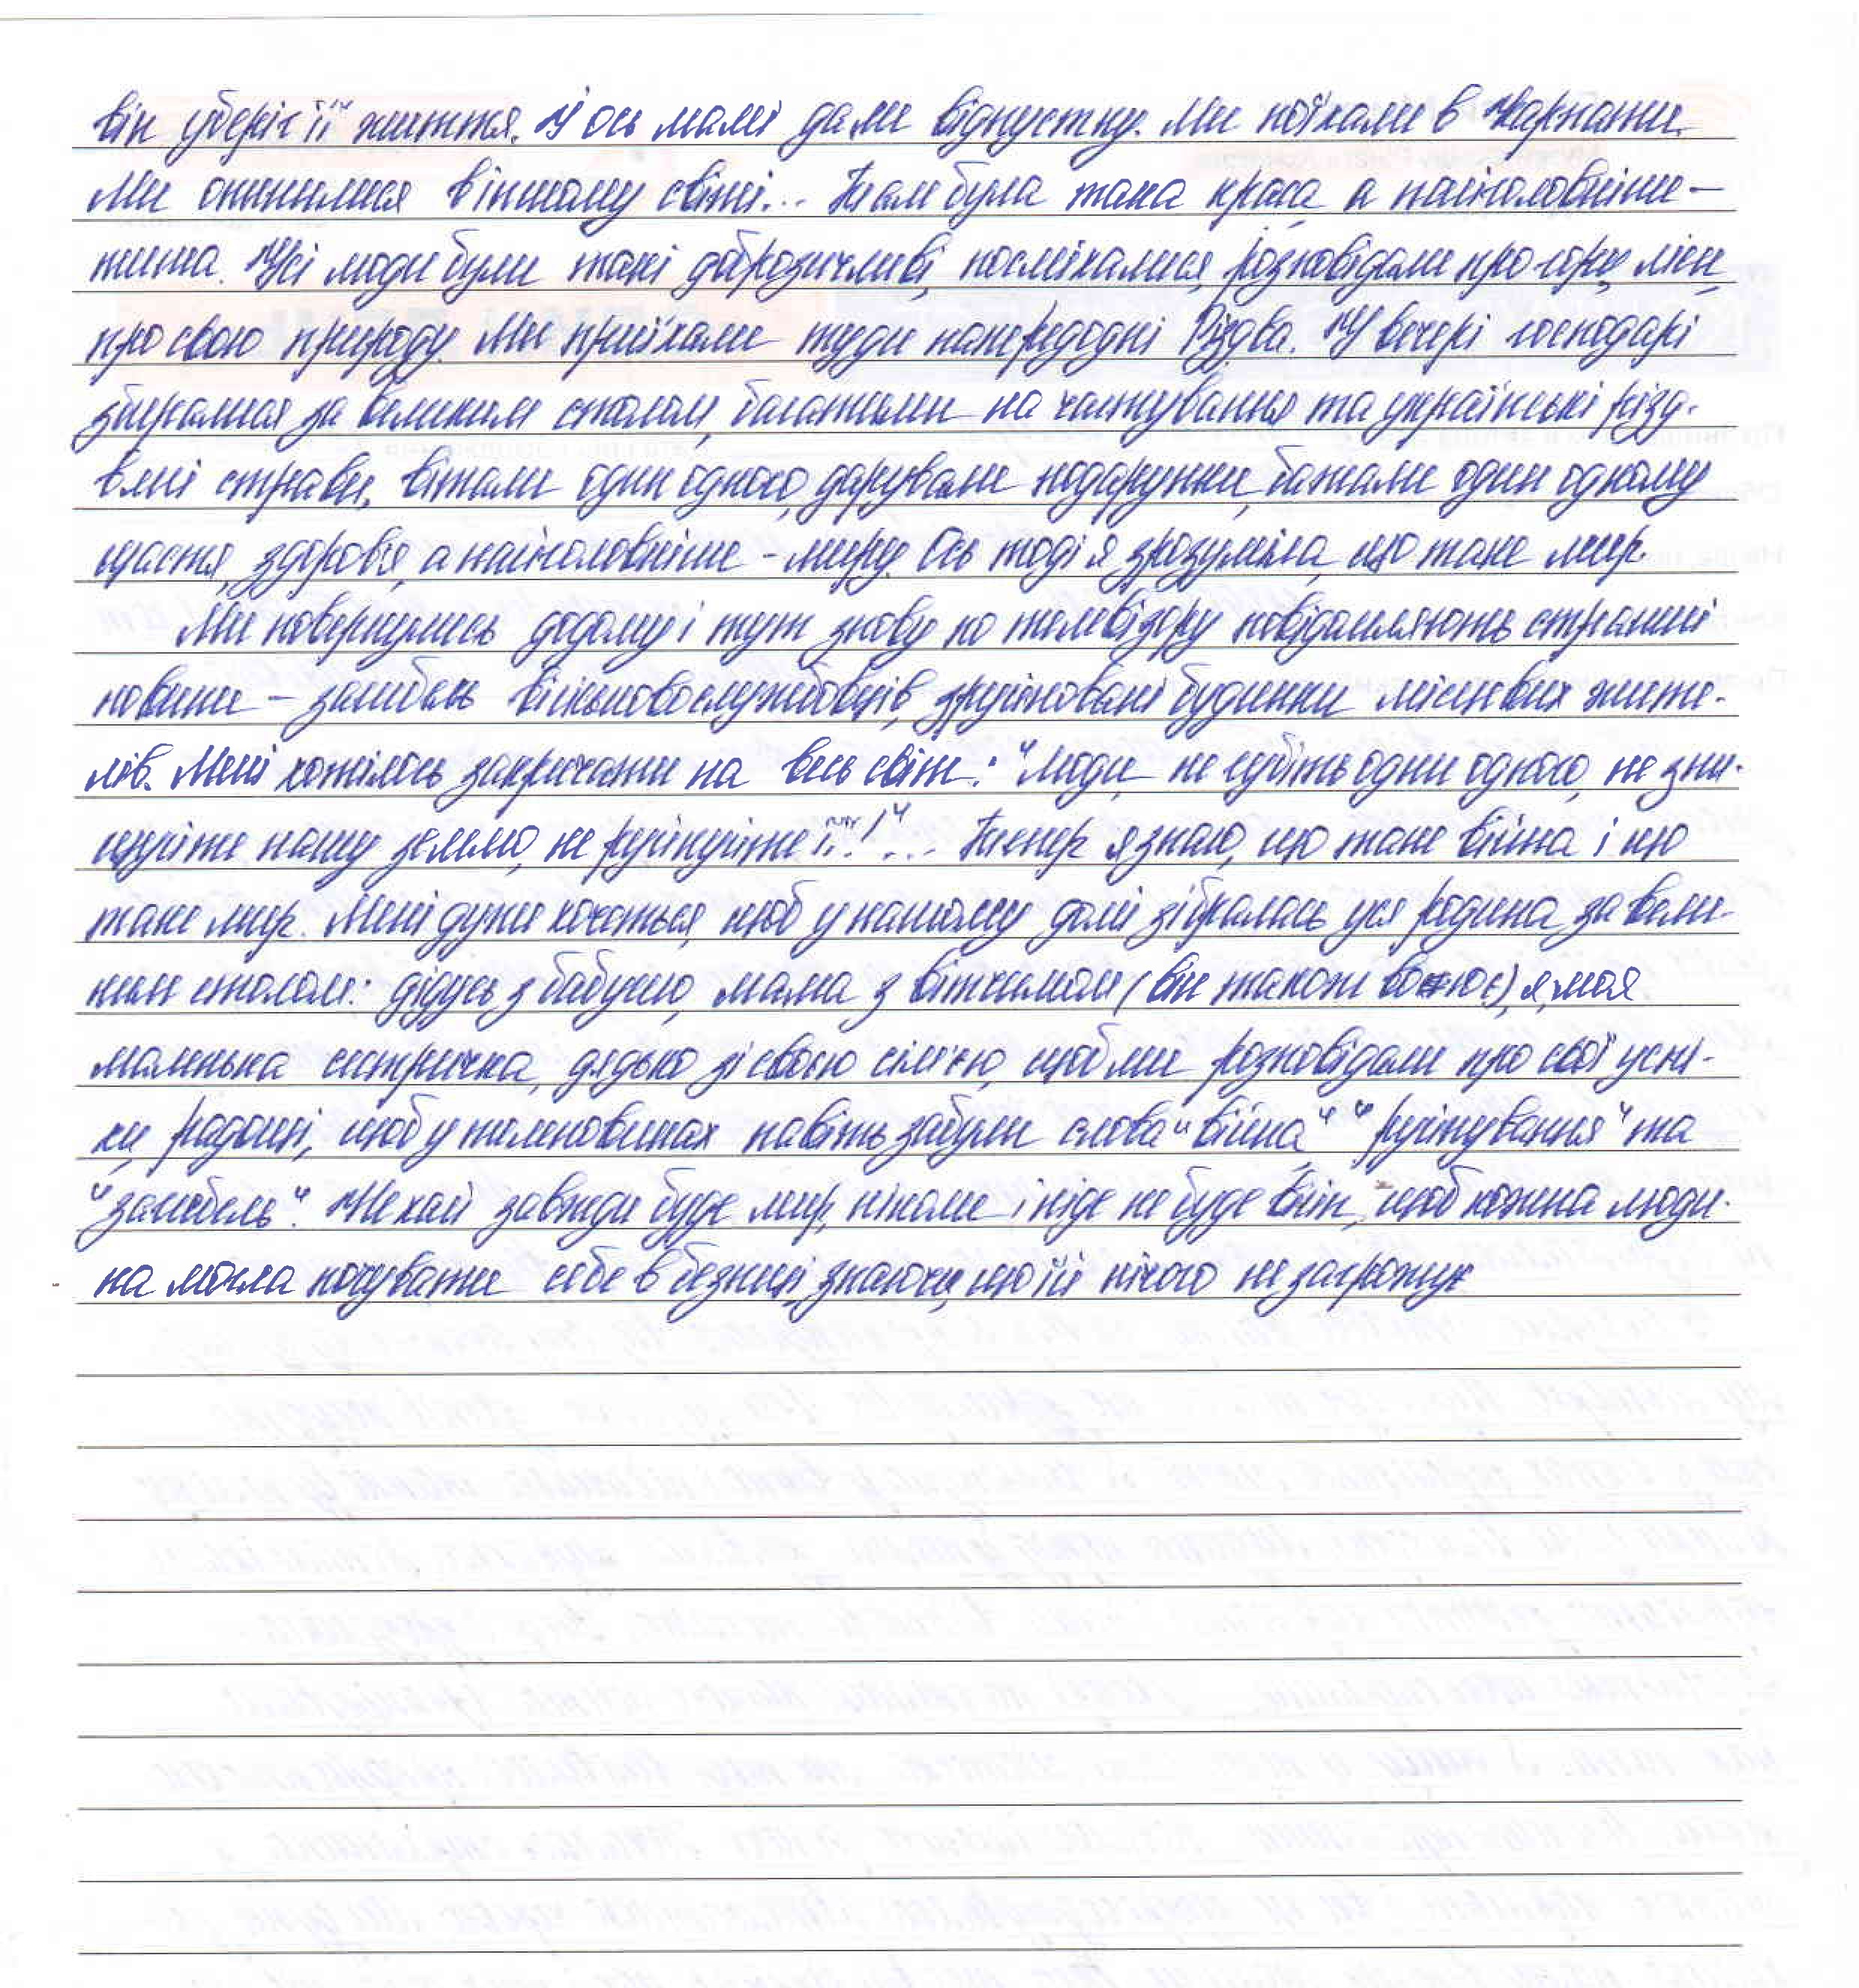 він уберіг її життя. І ось мамі дали відпустку. Ми поїхали в Карпати.
Ми опинилися в іншому світі... Там була така краса, а найголовніше –
тиша. Усі люди були такі доброзичливі, посміхалися, розповідали про гори, ліси,
про свою природу. Ми приїхали туди напередодні Різдва. У вечері господарі
збиралися за великим столом, багатими на частування та українські різд-
вяні страви, вітали один одного, дарували подарунки, бажали один одному
щастя, здоров'я, а найголовніше - миру. Ось тоді я зрозуміла, що таке мир.
Ми повернулись додому і тут знову по телевізору повідомляють страшні
новини – загибель військовослужбовців, зруйновані будинки місцевих жите-
лів. Мені хотілось закричати на весь світ: "Люди, не губіть одни одного, не зни-
щуйте нашу землю, не руйнуйте її!"... Тепер я знаю, що таке війна і що
таке мир. Мені дуже хочеться, щоб у нашому домі зібралась уся родина за вели-
ким столом: дідусь з бабусею, мама з вітчимом (він також воює), я, моя
маленька сестричка, дядько зі своєю сім'єю, щоб ми розповідали про свої успі-
хи, радощі, щоб у теленовинах навіть забули слова "війна", "руйнування" та
"загибель". Нехай завжди буде мир, ніколи і ніде не буде війн, щоб кожна люди-
на могла почувати себе в безпеці, знаючи, що їй нічого не загрожує